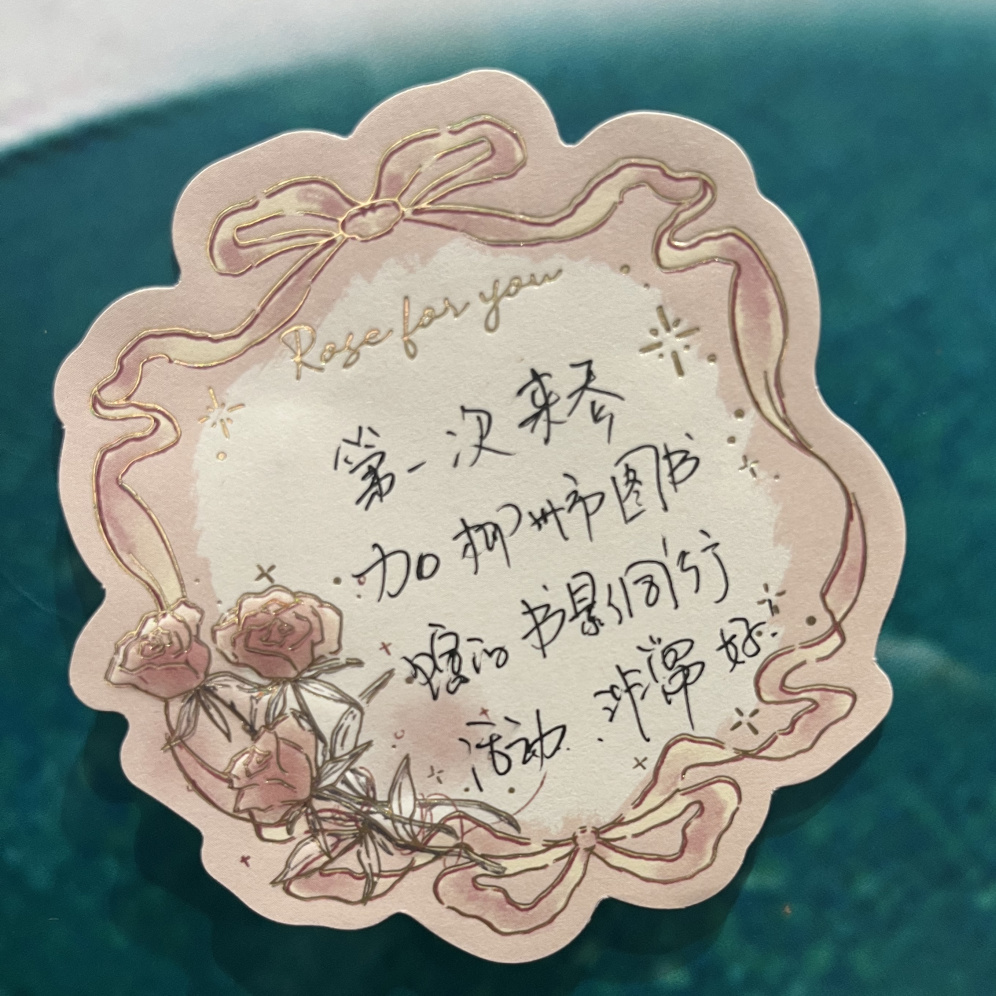 Rose for you
第一次来参
加柳州市图书
馆的书影同行
活动.非常好.